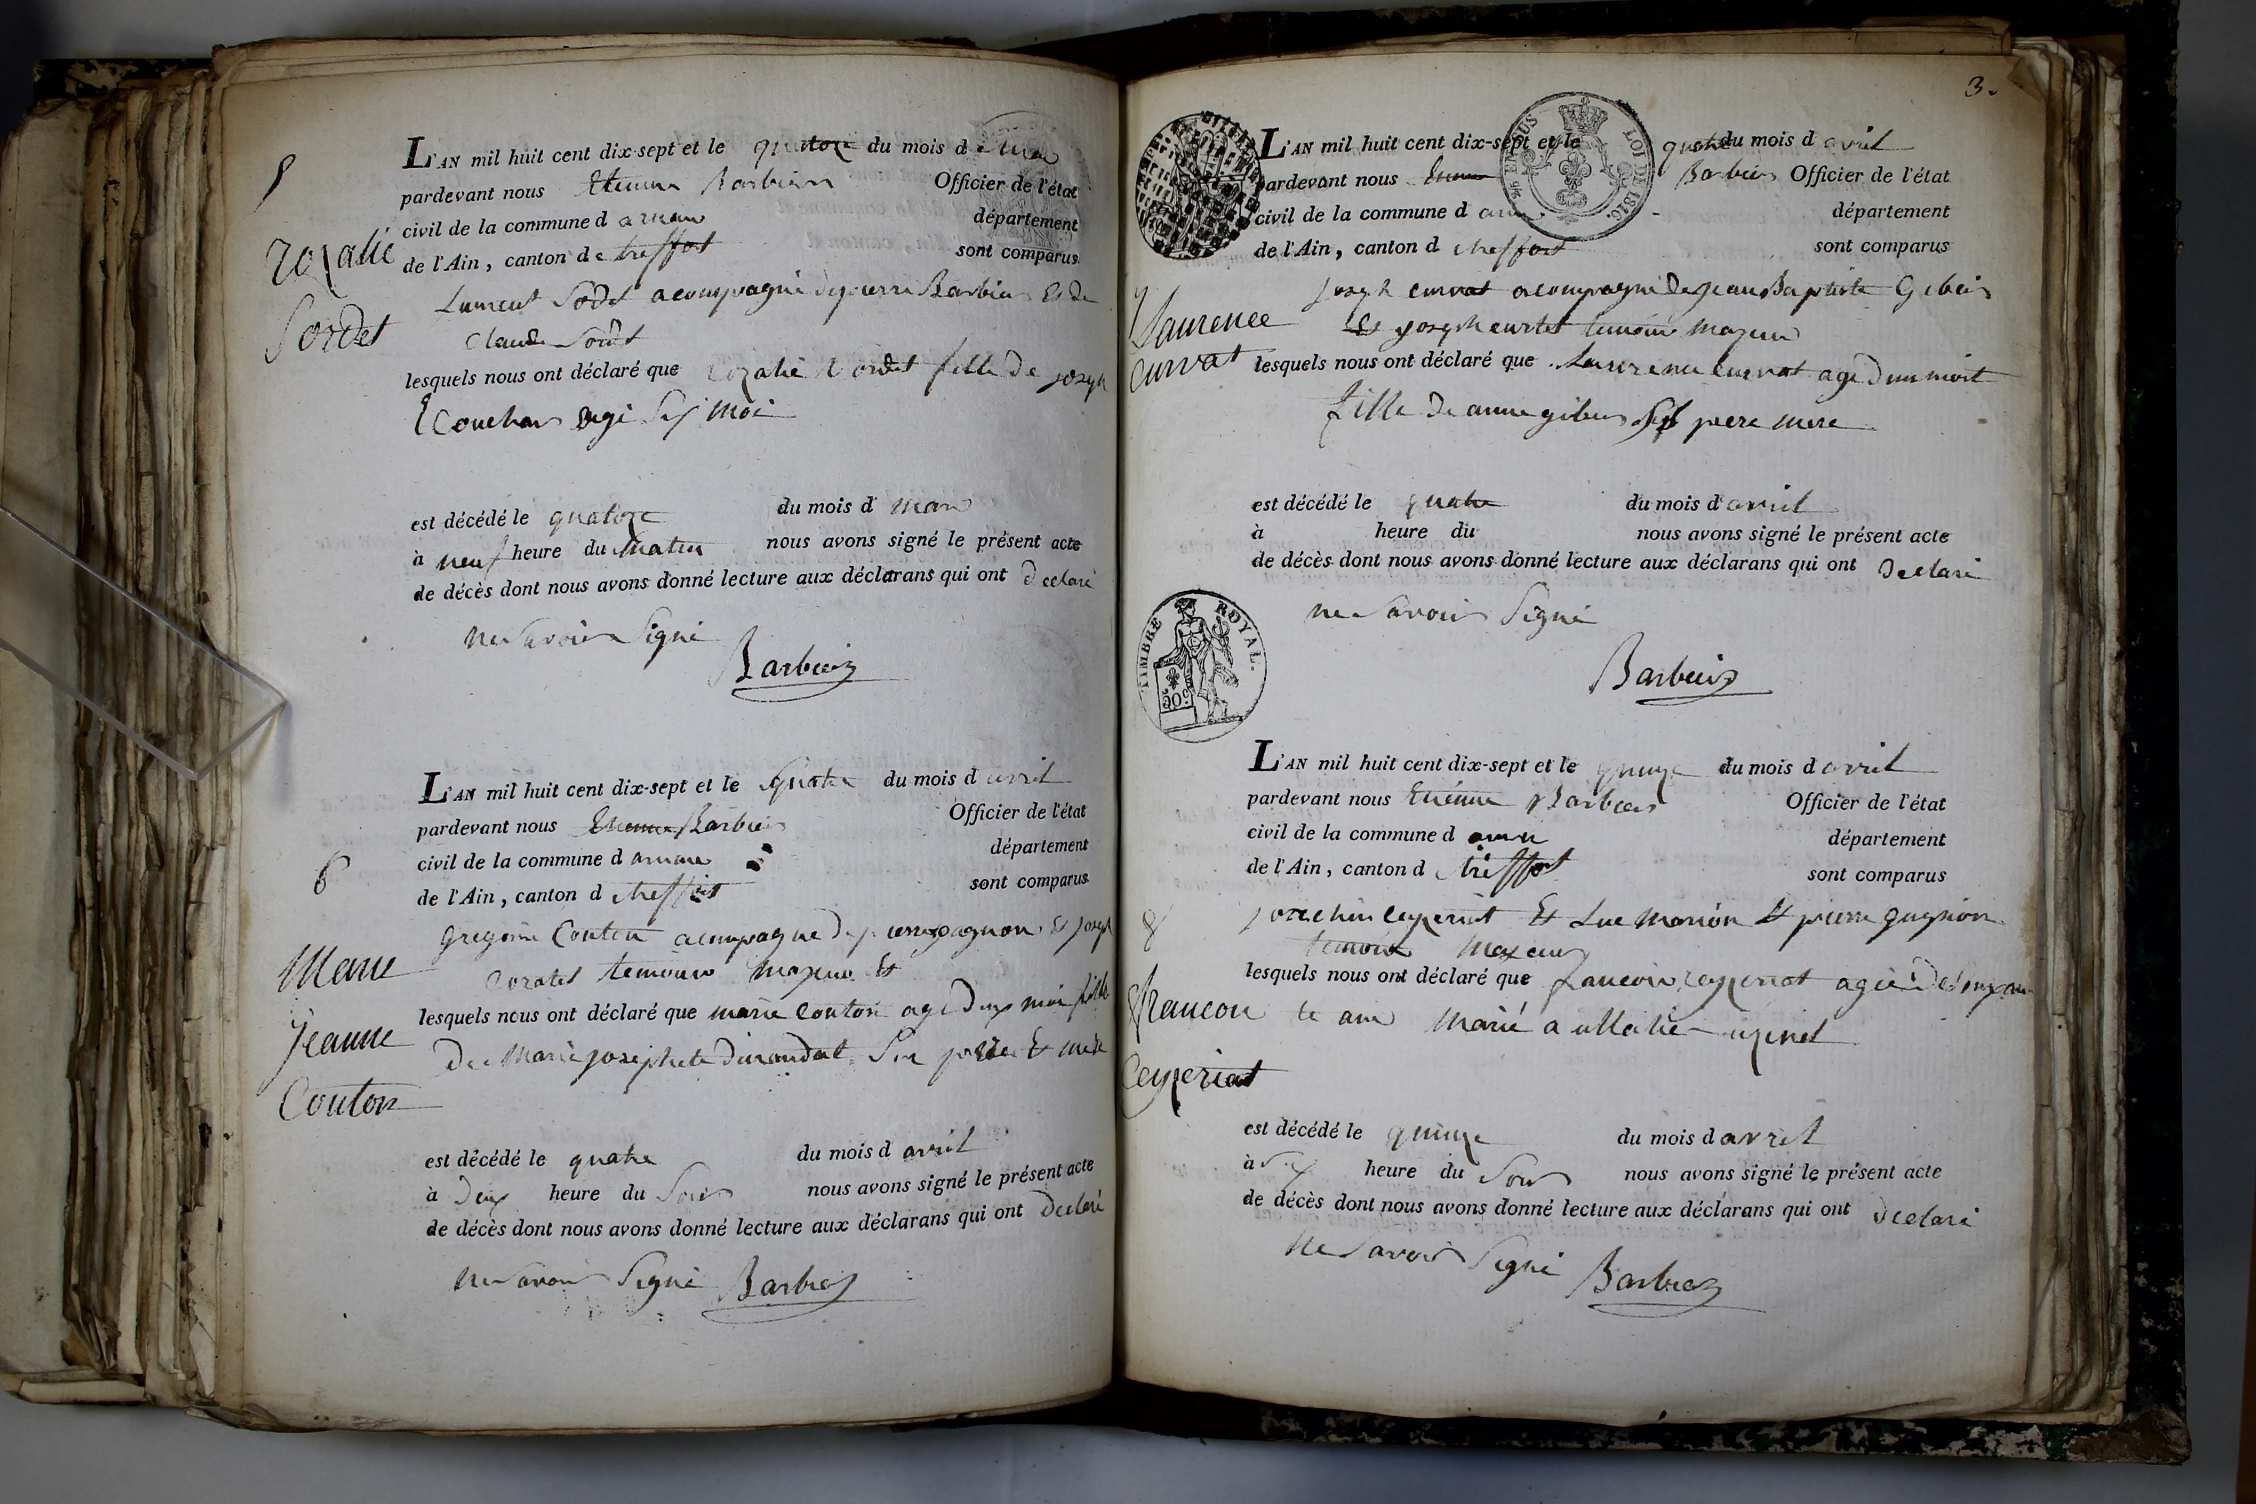 5
rozalie
Sordet
L'AN mil huit cent dix-sept et le quatorze du mois de mar
pardevant nous Etienne Barbier Officier de l'état
civil de la commune d arnan département
de l'Ain, canton de treffort sont comparus
Laurent Sodet acompagné de pierre Barbier Et de
Claude Sordet
lesquels nous ont déclaré que rozalie Sordet fille de joseph
agé Six moi
est décédé le quatorze du mois d mar
à neuf heure du Matin nous avons signé le présent acte
de décès dont nous avons donné lecture aux déclarans qui ont declaré
ne Savoir Signé
Barbier
6
Marie
jeanne
Couton
L'AN mil huit cent dix-sept et le quatre du mois d avril
pardevant nous Etienne Barbier Officier de l'état
civil de la commune d arnan département
de l'Ain, canton d treffort sont comparus
gregoire Couton acompagné de pierre pagnon Et joseph
temoin majeur Et
lesquels nous ont déclaré que marie Couton agé deux moi fille
De Marie josephete Durandat Ses père Et mere
est décédé le quatre du mois d avril
à deux heure du Soir nous avons signé le présent acte
de décès dont nous avons donné lecture aux déclarans qui ont declaré
ne Savoir Signé Barbier
3.
EN SUS
LOI DE 1816.
7
Laurence
curvat
L'AN mil huit cent dix-sept et le quatre du mois d avril
pardevant nous Etienne Barbier Officier de l'état
civil de la commune d arnan département
de l'Ain, canton d treffort sont comparus
joseph curvat acompagné de jean Baptiste Gibeis
Et joseph curtet temoin majeur
lesquels nous ont déclaré que Laurence curvat agé d un moit
fille de anne gibeis Ses pere mere
est décédé le quatre du mois d avril
à heure du nous avons signé le présent acte
de décès dont nous avons donné lecture aux déclarans qui ont declaré
ne Savoir Signé
Barbier
TIMBRE ROYAL.
50c
8
francoi
Ceyzeriat
L'AN mil huit cent dix-sept et le quinze du mois d avril
pardevant nous Etienne Barbier Officier de l'état
civil de la commune d arnan département
de l'Ain, canton d treffort sont comparus
joachin ceyzeriat Et Luc Marion Et pierre gugnion
temoin Majeur
lesquels nous ont déclaré que francoi ceyzeriat agé de
te ans Marié a
est décédé le quinze du mois d avril
à Six heure du Soir nous avons signé le présent acte
de décès dont nous avons donné lecture aux déclarans qui ont declaré
ne Savoir Signé Barbier